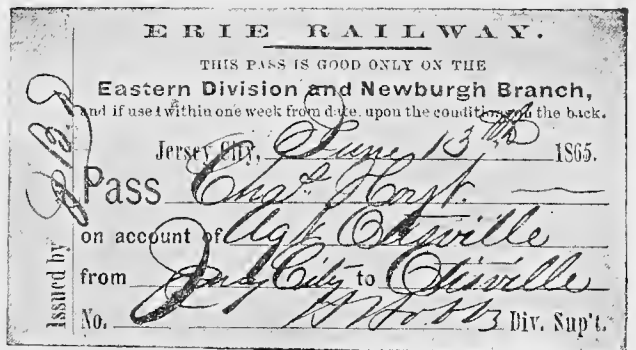 ERIE RAILWAY.
THIS PASS IS GOOD ONLY ON THE
Eastern Division and Newburgh Branch,
and if used within one week from date, upon the conditions on the back.
Jersey City, June 13th 1865.
Pass Chas. Horst.
on account of Agt Otisville
from Jersey City to Otisville
No. Div. Sup't.
Issued by